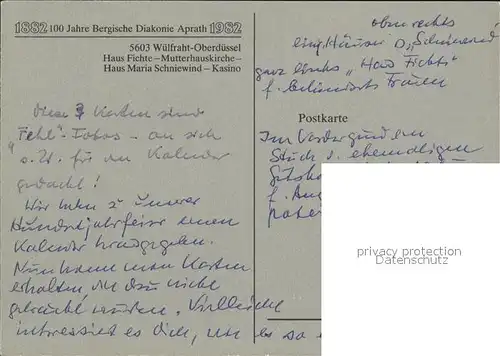 1882 100 Jahre Bergische Diakonie Aprath 1982
5603 Wülfraht-Oberdüssel
Haus Fichte – Mutterhauskirche –
Haus Maria Schniewind – Kasino
oben rechts
ganz links „Haus Fichte"
f. behinderte Frauen
Diese 3 Karten sind
"Fehl"-Fotos - an sich
für den Kalender
gedacht!
Wir haben z. unserer
Hundertjahrfeier einen
Kalender herausgegeben.
Nun kann man Karten
erhalten, die dazu nicht
gebraucht wurden. Vielleicht
interessiert es dich,
Postkarte
Im Vordergrund ein
Stück d. ehemaligen
privacy protection
Datenschutz